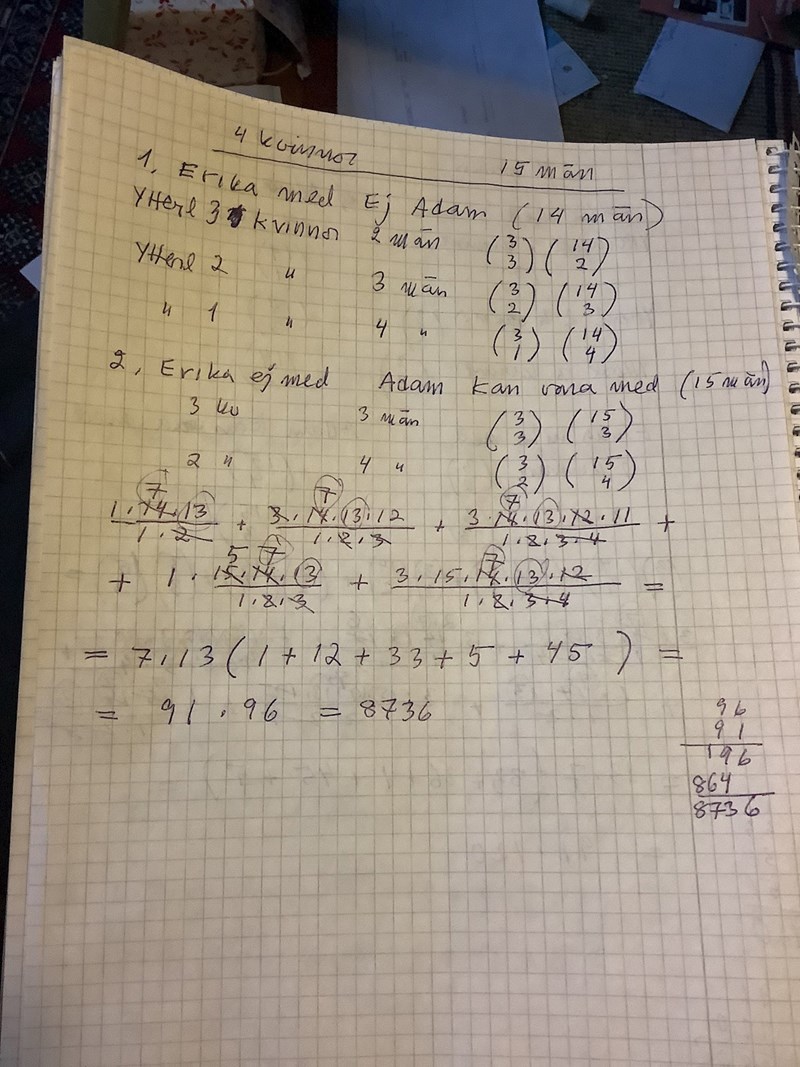 4 kvinnor 15 män
1. Erika med Ej Adam (14 män)
Ytterl 3 kvinnor 2 män (3 3) (14 2)
Ytterl 2 " 3 män (3 2) (14 3)
" 1 " 4 " (3 1) (14 4)
2. Erika ej med Adam kan vara med (15 män)
3 kv 3 män (3 3) (15 3)
2 " 4 " (3 2) (15 4)
7 7 7
1·14·13 / 1·2 + 3·14·13·12 / 1·2·3 + 3·14·13·12·11 / 1·2·3·4 +
5 7 7
+ 1· 15·14·13 / 1·2·3 + 3·15·14·13·12 / 1·2·3·4 =
= 7·13 (1 + 12 + 33 + 5 + 45) =
= 91 · 96 = 8736
96
91
196
864
8736